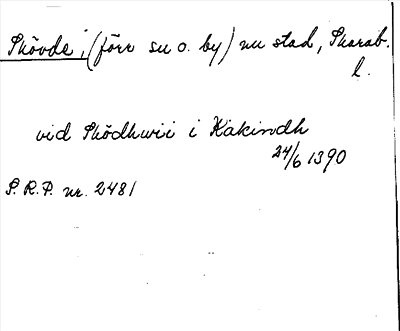 Skövde, (förr su o. by) nu stad, Skarab.
l.
vid Sködhwii i Kakindh
24/6 1390
S.R.P. nr. 2481